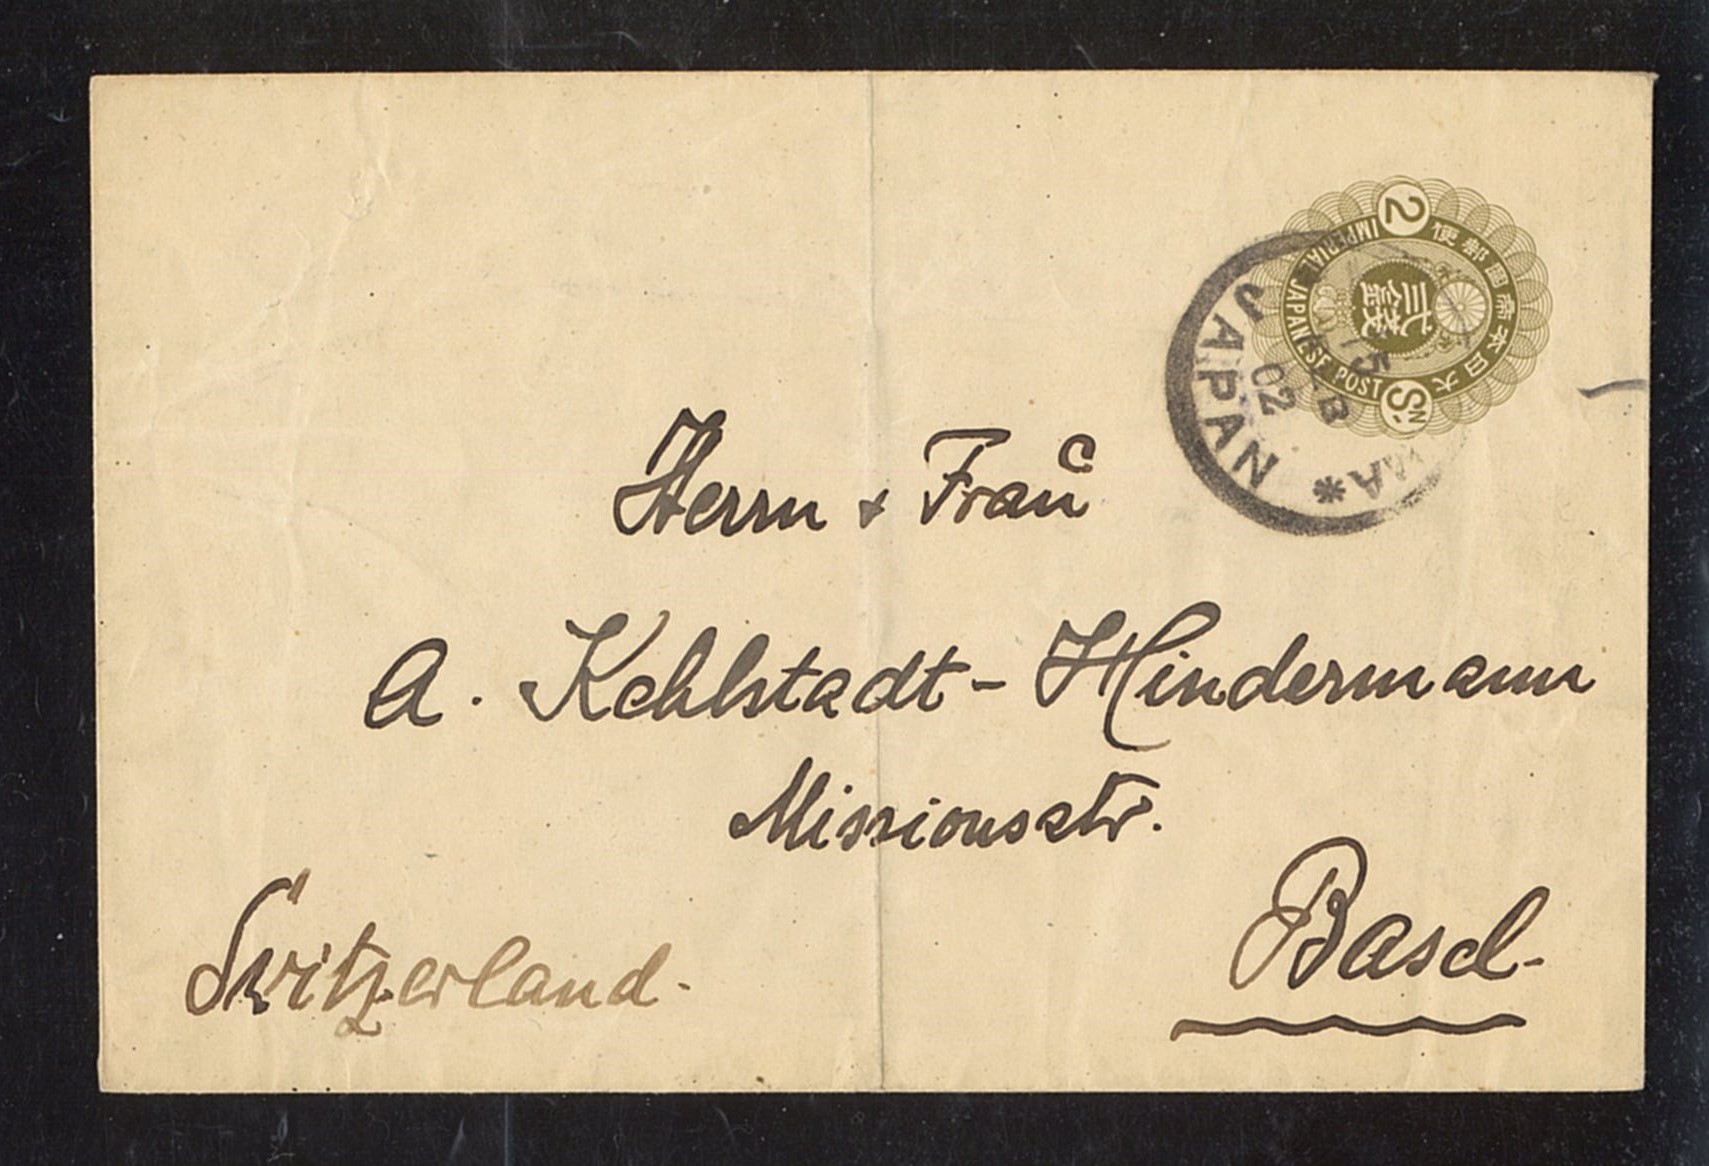 2
IMPERIAL JAPANESE POST
大日本帝國郵便
貳錢
Sn
JAPAN
15
02
Herrn + Frau
A. Kehlstadt-Hindermann
Missionsstr.
Basel-
Switzerland.